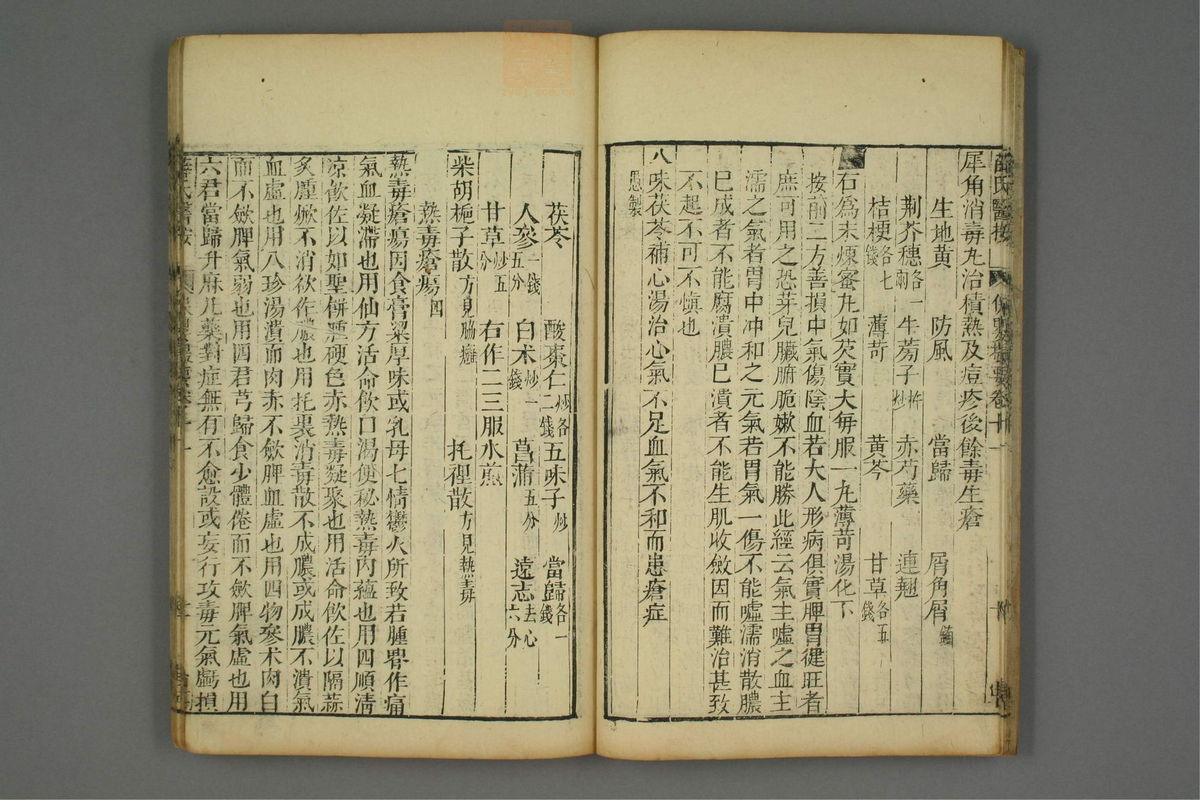 犀角消毒丸治積熱及痘疹後餘毒生瘡
生地黄 防風 當歸 屑角屑鎊
荆芥穗各一兩 牛蒡子杵炒 赤芍藥 連翹
桔梗各七錢 薄苛 黄芩 甘草各五錢
右爲末煉蜜丸如芡實大每服一丸薄苛湯化下
按前二方善損中氣傷陰血若大人形病俱實脾胃健旺者
庶可用之恐芽兒臟腑脆嫰不能勝此經云氣主嘘之血主
濡之氣者胃中冲和之元氣若胃氣一傷不能嘘濡消散膿
巳成者不能腐潰膿巳潰者不能生肌收斂因而難治甚致
不起不可不愼也
愚製
八味茯苓補心湯治心氣不足血氣不和而患瘡症
茯苓 酸棗仁炒各二錢 五味子炒 當歸各一錢
人參一錢五分 白术炒一錢 菖蒲五分 遠志去心六分
甘草炒五分 右作二三服水煎
柴胡梔子散方見腦癰 托裡散方見熱毒
熱毒瘡瘍四
熱毒瘡瘍因食膏粱厚味或乳母七情鬱火所致若腫㿔作痛
氣血凝滯也用仙方活命飲口渴便秘熱毒内蘊也用四順清
凉飲佐以如聖餅腫硬色赤熱毒凝聚也用活命飲佐以隔蒜
炙腫㾮不消欲作膿也用托裏消毒散不成膿或成膿不潰氣
血虛也用八珍湯潰而肉赤不斂脾血虛也用四物參术肉白
而不斂脾氣弱也用四君芎歸食少體倦而不斂脾氣虛也用
六君當歸升麻凡藥對症無有不愈設或妄行攻毒元氣虧損